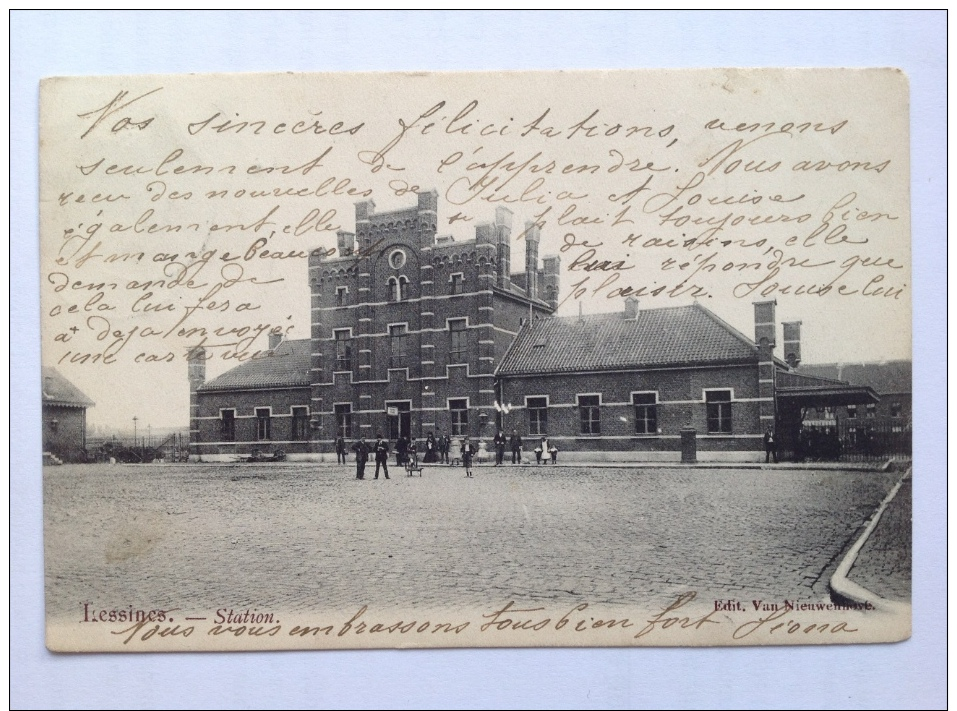 Vos sincères félicitations, venons
seulement de l'apprendre. Nous avons
reçu des nouvelles de Julia et Louise
également, elle s'y plait toujours bien
et mange beaucoup de raisins, elle
demande de lui répondre que
cela lui fera plaisir. Louise lui
a déja envoyé
une carte vue
Lessines. — Station.
Edit. Van Nieuwenhove.
Nous vous embrassons tous bien fort